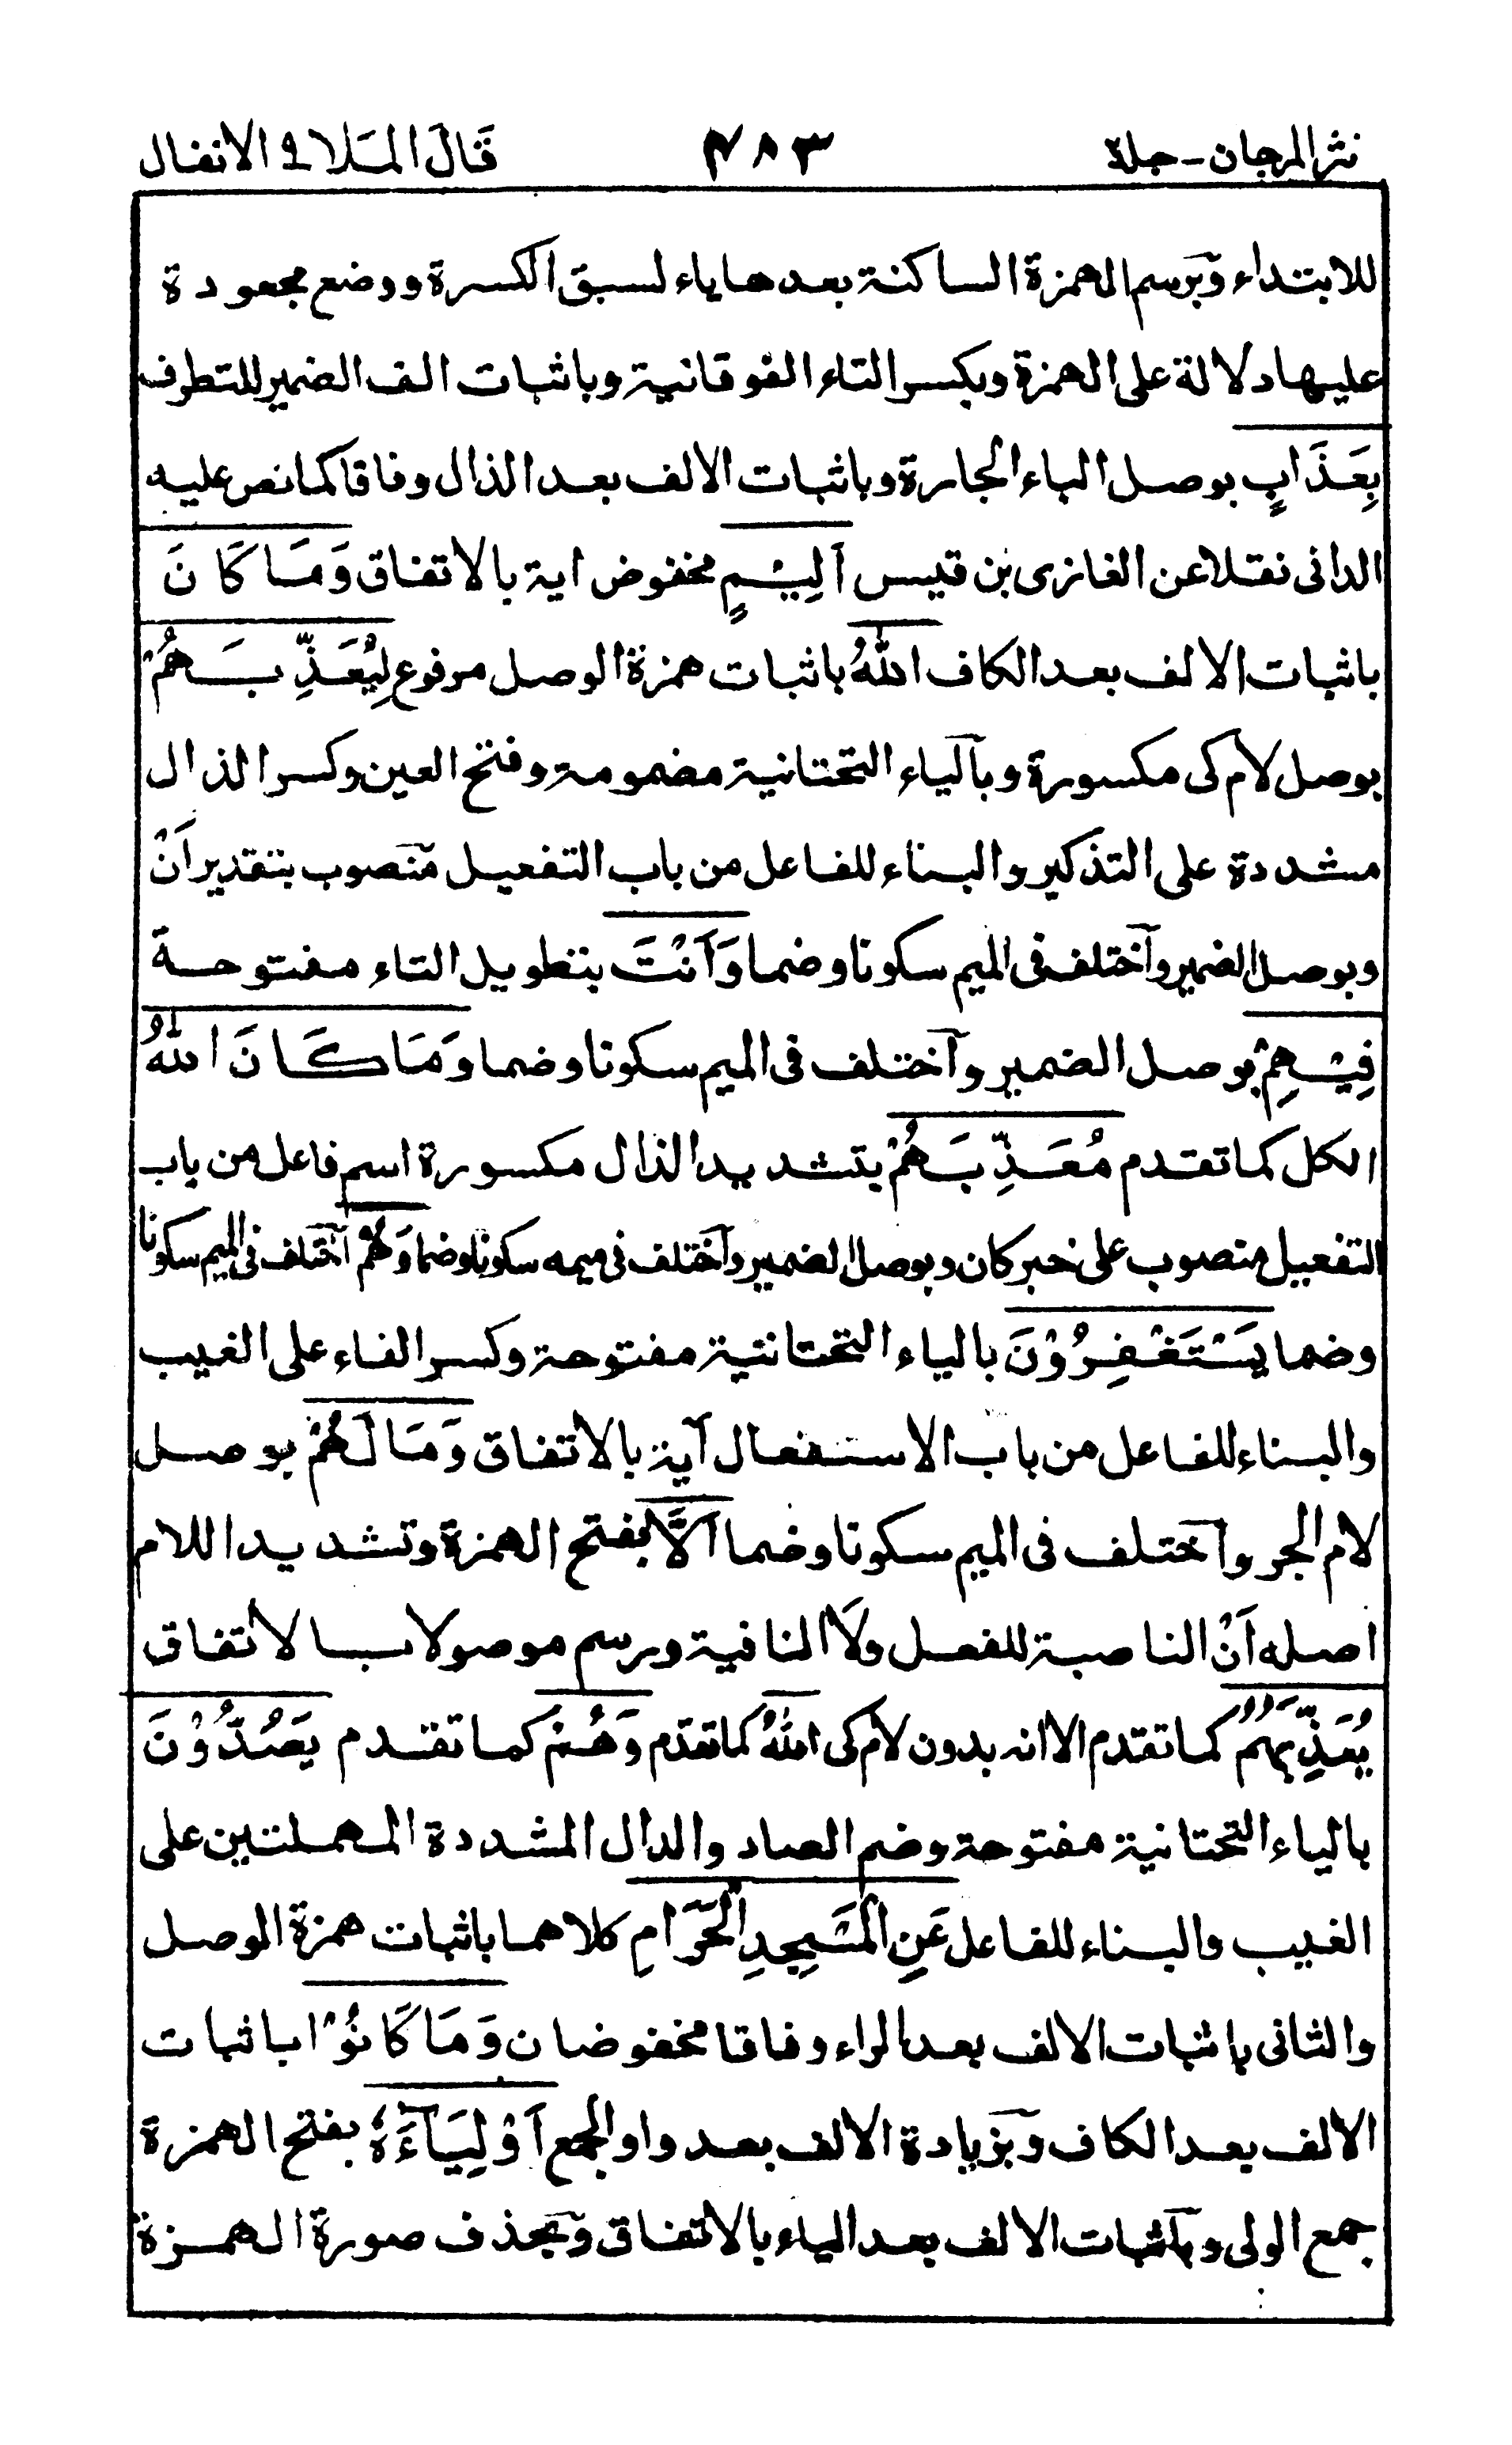 نثر المرجان - جلد٢ ٤٨٣ قَالَ المَلا ٩ الانفال
للابتداء وَبرسم الهمزة الساكنة بعدها ياء لسبق الكسرة ووضع مجعودة
عليها دلالة على الهمزة وبكسر التاء الفوقانية وباثبات الف الضمير للتطرف
بِعَذَابٍ بوصل الباء الجارة وباثبات الالف بعد الذال وفاقا كما نص عليه
الدانى نقلا عن الغازى بن قيس اَلِيْمٍ مخفوض اية بالاتفاق وَمَا كَانَ
باثبات الالف بعد الكاف اللّٰهُ باثبات همزة الوصل مرفوع لِيُعَذِّبَهُمْ
بوصل لام كى مكسورة وبالياء التحتانية مضمومة وفتح العين وكسر الذال
مشددة على التذكير والبناء للفاعل من باب التفعيل منصوب بتقدير اَنْ
وبوصل الضمير واختلف فى الميم سكونا وضما وَاَنْتَ بتطويل التاء مفتوحة
فِيْهِمْ بوصل الضمير واختلف فى الميم سكونا وضما وَمَا كَانَ اللّٰهُ
الكل كما تقدم مُعَذِّبَهُمْ بتشديد الذال مكسورة اسم فاعل من باب
التفعيل منصوب على خبر كان وبوصل الضمير واختلف فى ميمه سكونا وضما وَهُمْ اختلف فى الميم سكونا
وضما يَسْتَغْفِرُوْنَ بالياء التحتانية مفتوحة وكسر الفاء على الغيب
والبناء للفاعل من باب الاستفعال آية بالاتفاق وَمَا لَهُمْ بوصل
لام الجر واختلف فى الميم سكونا وضما اَلَّا بفتح الهمزة وتشديد اللام
اصله اَنْ الناصبة للفعل ولَا النافية ورسم موصولا بالاتفاق
يُعَذِّبَهُمُ كما تقدم الا انه بدون لام كى اللّٰهُ كما تقدم وَهُمْ كما تقدم يَصُدُّوْنَ
بالياء التحتانية مفتوحة وضم الصاد والدال المشددة المهملتين على
الغيب والبناء للفاعل عَنِ الْمَسْجِدِ الْحَرَامِ كلاهما باثبات همزة الوصل
والثانى باثبات الالف بعد الراء وفاقا مخفوضان وَمَا كَانُوْا باثبات
الالف بعد الكاف وَبزيادة الالف بعد واو الجمع اَوْلِيَآءَهٗ بفتح الهمزة
جمع الولى وباثبات الالف بعد الياء بالاتفاق وَبحذف صورة الهمزة